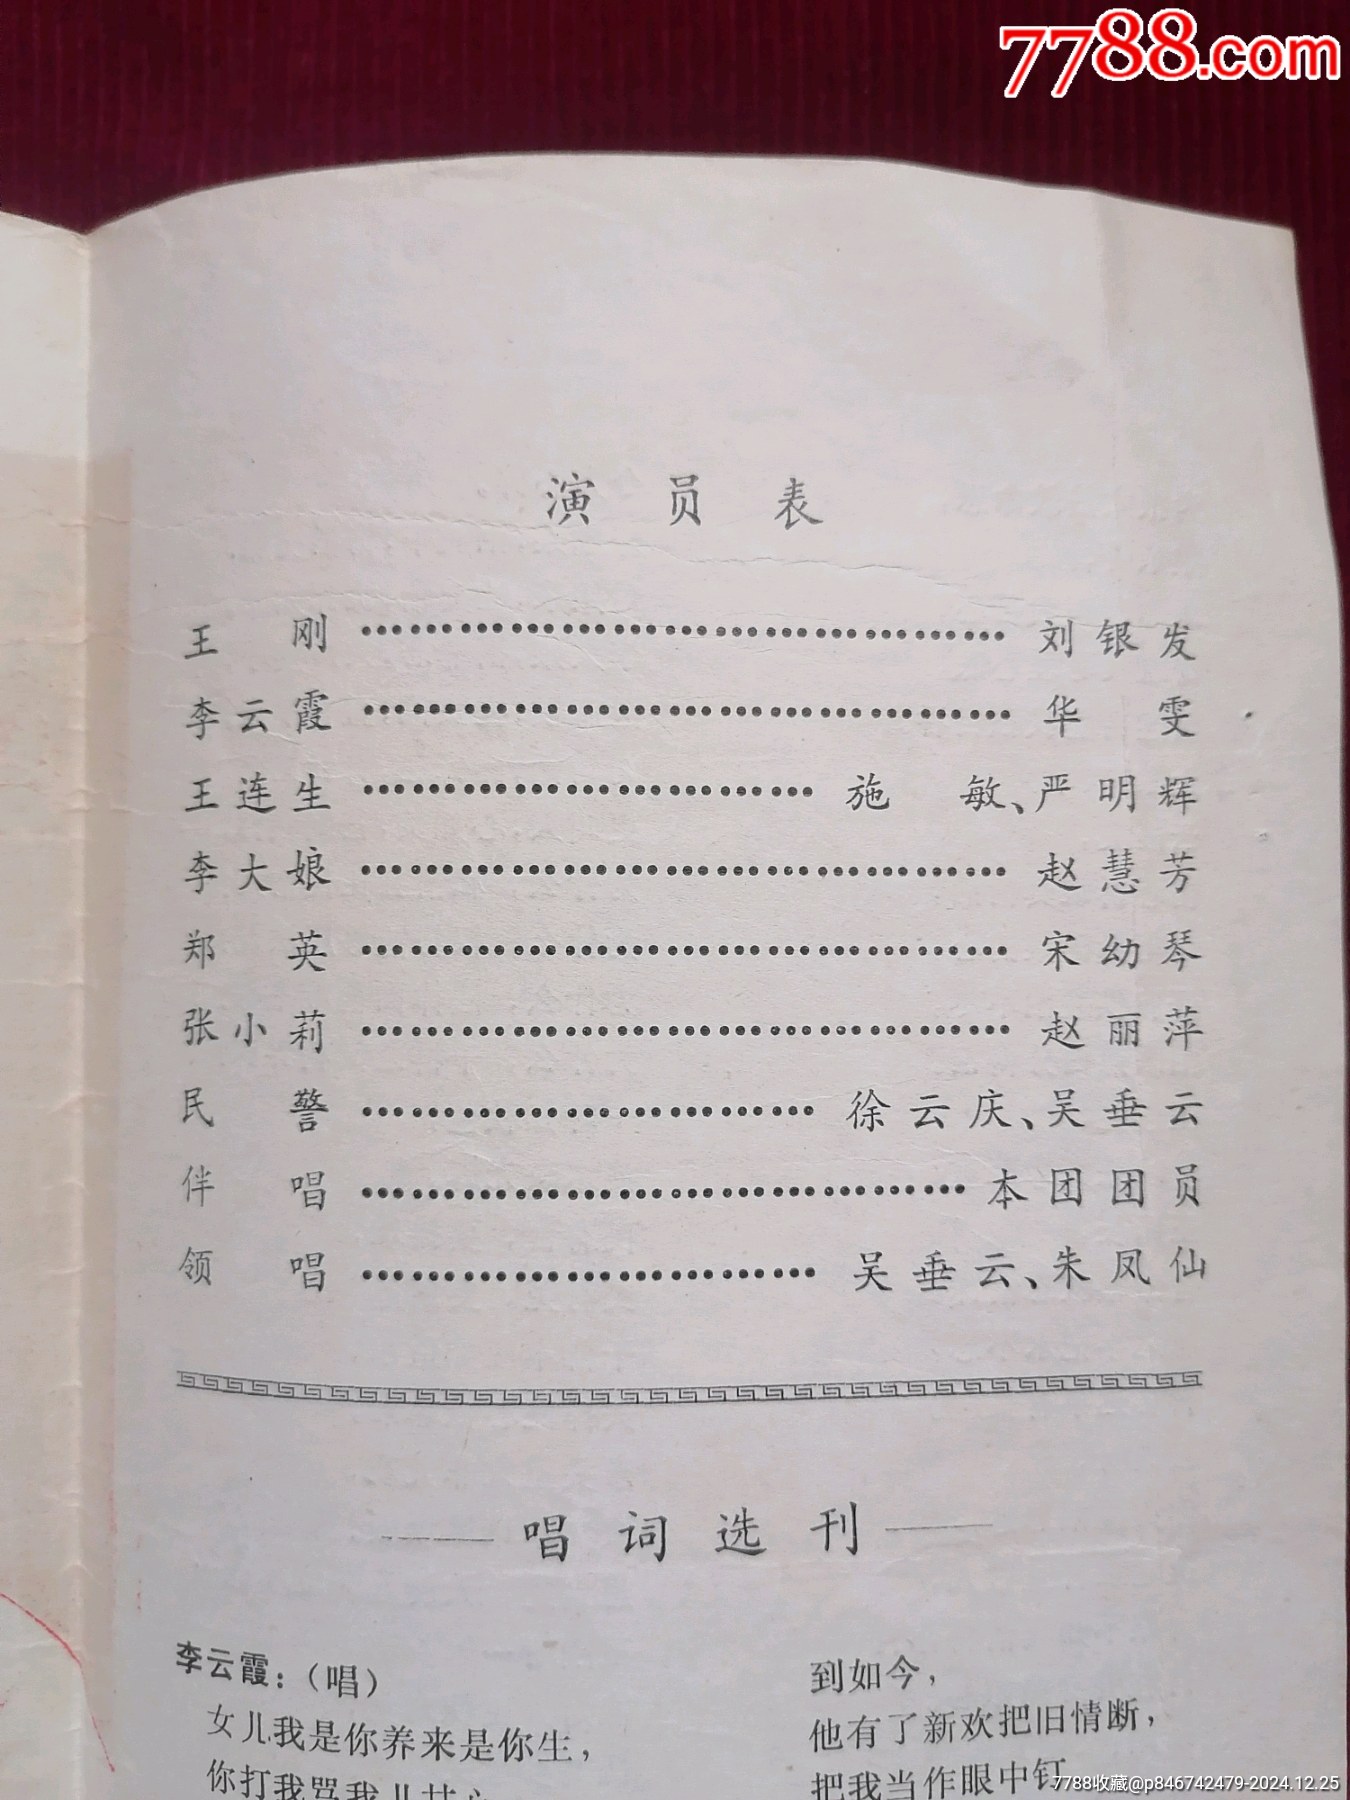 7788.com
演员表
王刚……………………刘银发
李云霞……………………华雯
王连生……………………施敏、严明辉
李大娘……………………赵慧芳
郑英……………………宋幼琴
张小莉……………………赵丽萍
民警……………………徐云庆、吴垂云
伴唱……………………本团团员
领唱……………………吴垂云、朱凤仙
——唱词选刊——
李云霞：（唱）
女儿我是你养来是你生，
你打我骂我儿甘心
到如今，
他有了新欢把旧情断，
把我当作眼中钉
7788收藏@p846742479-2024.12.25